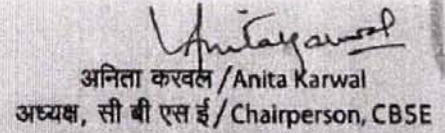 Anitakarwal
अनिता करवल/Anita Karwal
अध्यक्ष, सी बी एस ई/Chairperson, CBSE